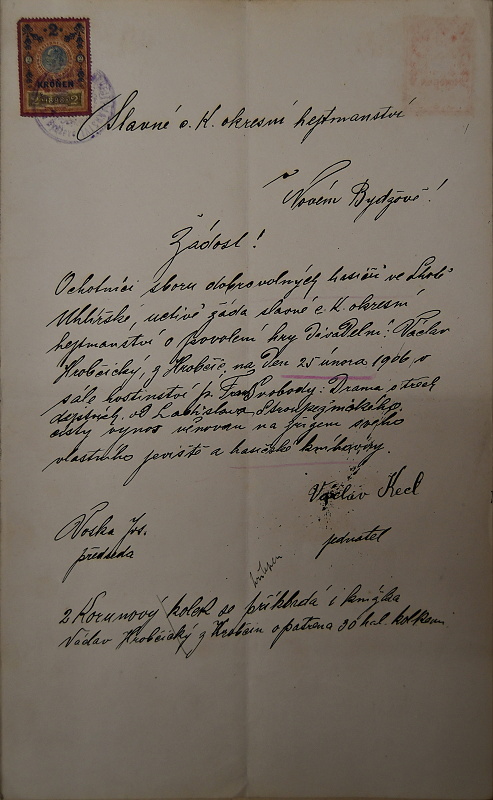 2
KRONEN
Slavné c. K. okresní hejtmanství
v Novém Bydžově!
Žádost!
Ochotníci sboru dobrovolných hasičů ve Lhotě
Uhlířské, uctivě žáda slavné c. K. okresní
hejtmanství o povolení hry divadelní: Václav
Hrobčický, z Hrobčic, na Den 25 února 1906, v
sále hostinství p. Fran. Svobody: Drama o třech
dejstvích, od Ladislava Stroupežnického.
čistý výnos věnovan na
vlastního jeviště a hasičské knihovny.
Václav Kecl
Voska Jos.
jednatel
předseda
2 Korunový kolek se přikládá i knížka
Václav Hrobčický z Hrobčic opatřena 30 hal. kolkem